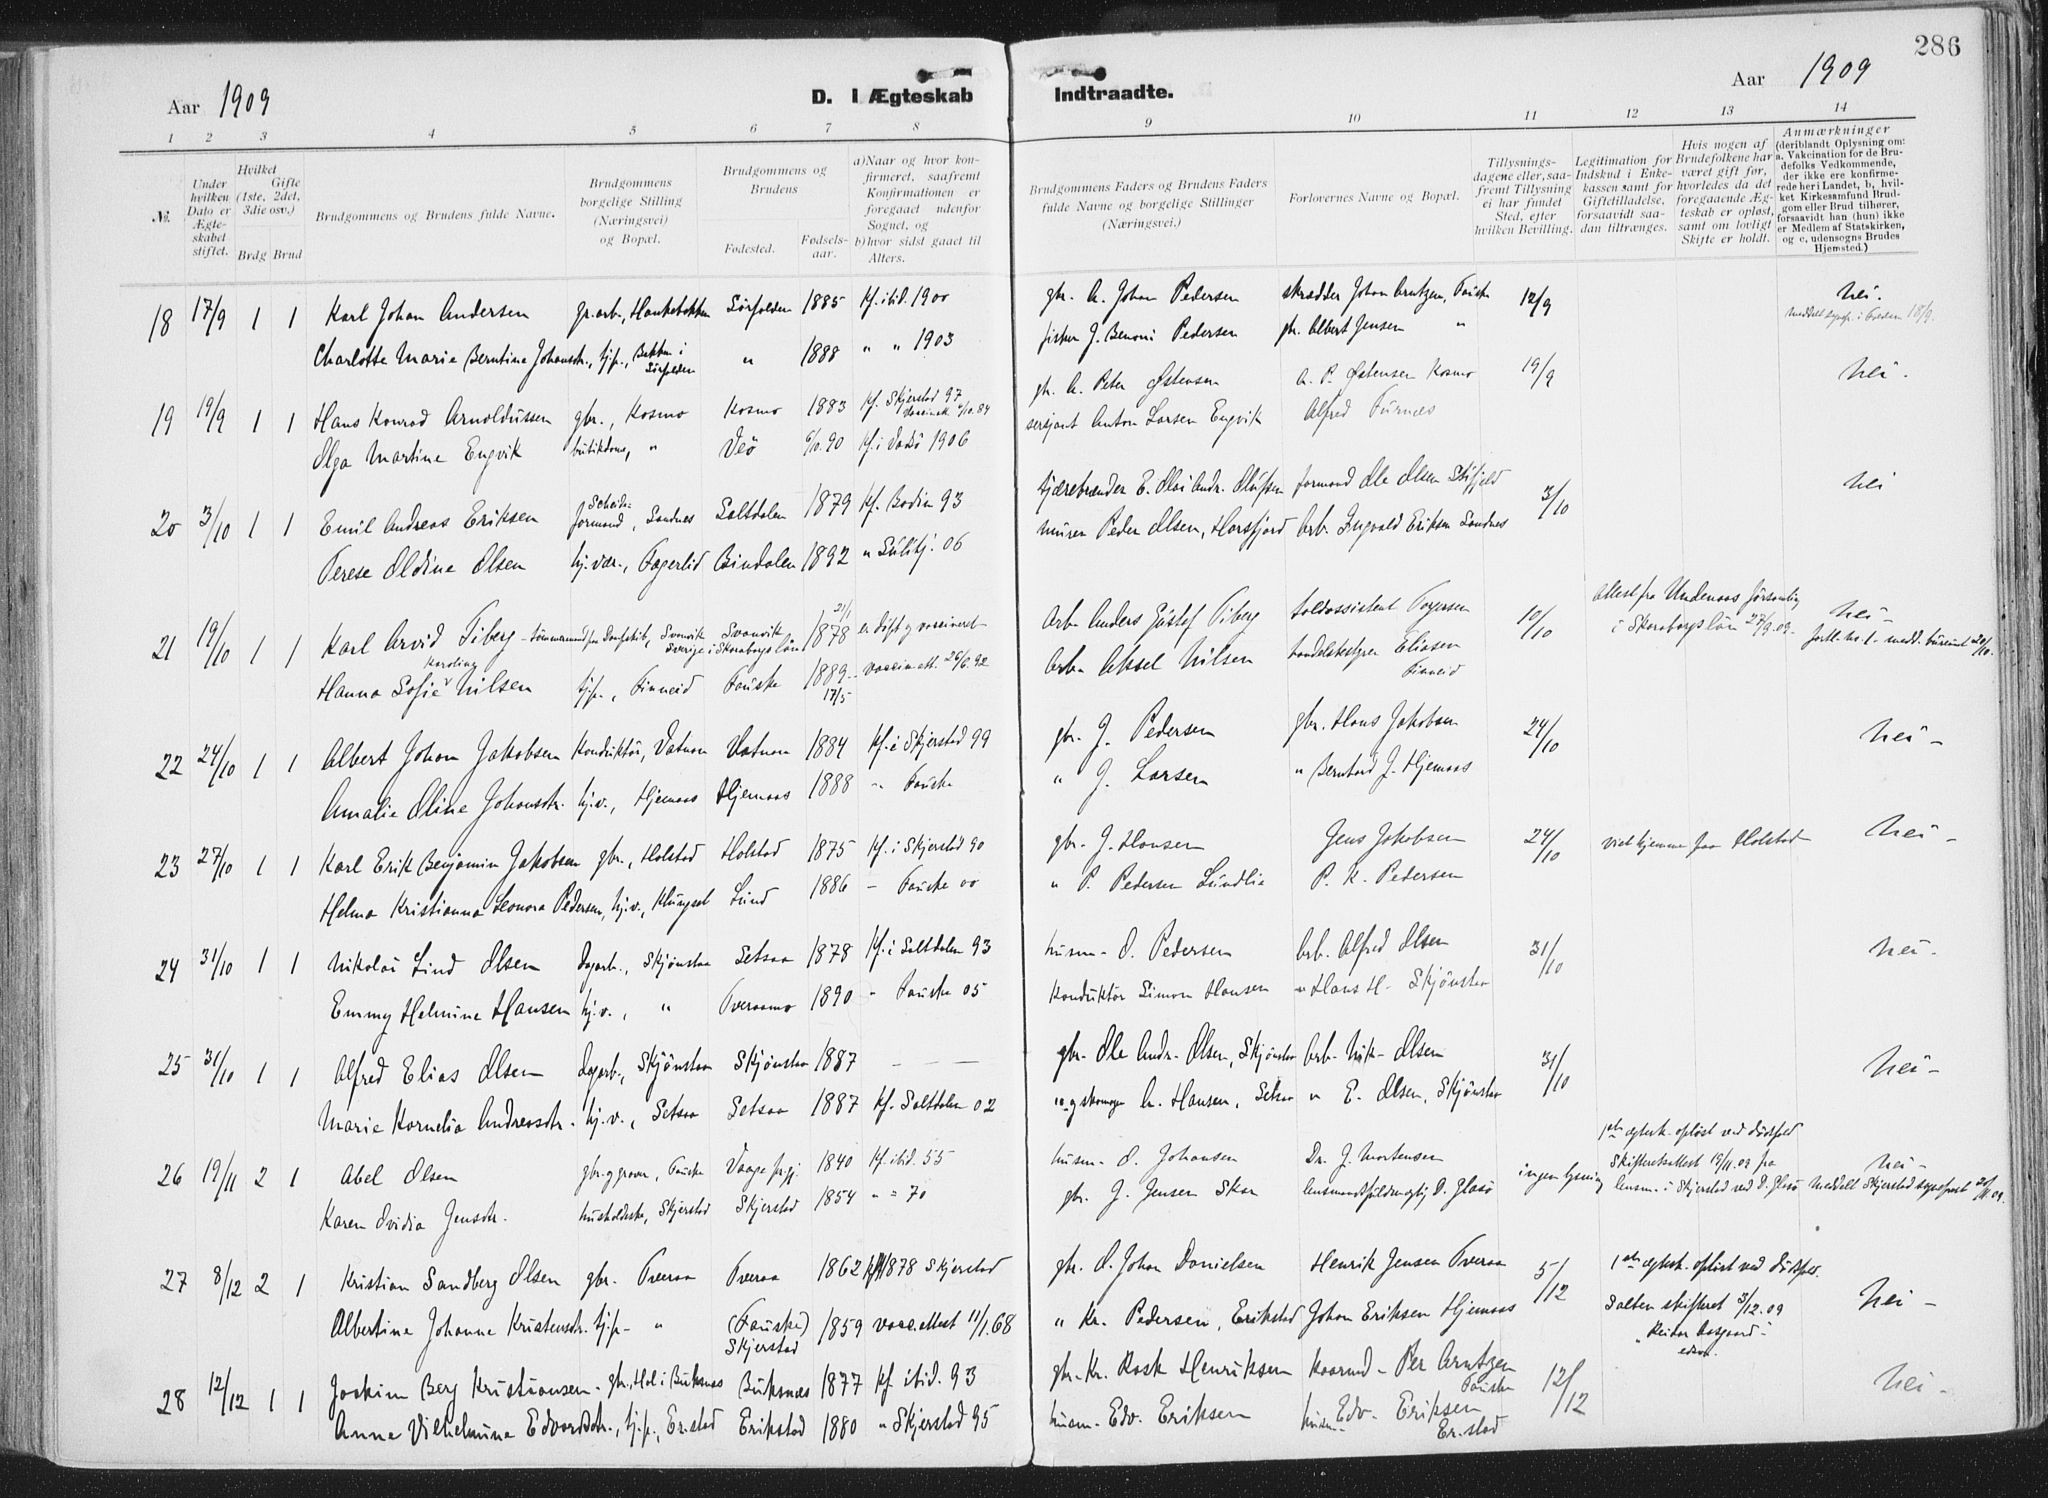 286
Aar 1909
D. I Ægteskab Indtraadte.
Aar 1909
1 2 3 4 5 6 7 8 9 10 11 12 13 14
No.
Under hvilken Dato er Ægteskabet stiftet.
Hvilket Gifte (1ste, 2det, 3die osv.)
Brdg Brud
Brudgommens og Brudens fulde Navne.
Brudgommens borgelige Stilling (Næringsvei) og Bopæl.
Brudgommens og Brudens
Fødested.
Fødselsaar.
a) Naar og hvor konfirmeret, saafremt Konfirmationen er foregaaet udenfor Sognet, og b) hvor sidst gaaet til Alters.
Brudgommens Faders og Brudens Faders fulde Navne og borgelige Stillinger (Næringsvei.)
Forlovernes Navne og Bopæl.
Tillysningsdagene eller, saafremt Tillysning ei har fundet Sted, efter hvilken Bevilling.
Legitimation for Indskud i Enkekassen samt for Giftetilladelse, forsaavidt saadan tiltrænges.
Hvis nogen af Brudefolkene har været gift før, hvorledes da det foregaaende Ægteskab er opløst, samt om lovligt Skifte er holdt.
Anmærkninger (deriblandt Oplysning om: a. Vakcination for de Brudefolks Vedkommende, der ikke ere konfirmerede her i Landet, b, hvilket Kirkesamfund Brudgom eller Brud tilhører, forsaavidt han (hun) ikke er Medlem af Statskirken, og c, udensogns Brudes Hjemsted.)
18 17/9 1 1 Karl Johan Andersen gr.arb., Hankabakken Sørfolden 1885 kf. ibid. 1900 gbr. A. Johan Pedersen skrædder Johan Arntzen, Fauske 12/9 Nei.
Charlotte Marie Berntine Johansdtr., tj.p., Bakken i Sørfolden " 1888 " " 1903 fisker J. Benoni Pedersen gb. Albert Jensen "
19 19/9 1 1 Hans Konrad Arnoldussen gbr., Kosmo Kosmo 1883 kf. Skjerstad 97 gb. A. Peter Østensen A. P. Østensen Kosmo 19/9 Nei.
Olga Martine Engvik butikdame, " Veø 6/10.90 kf. i Vadsø 1906 sersjant Anton Larsen Engvik Alfred Furnes
20 3/10 1 1 Emil Andreas Eriksen formand, Sandnes Saltdalen 1879 kf. Bodin 93 tjærebrænder E. Olai Andr. Olufsen formand Ole Olsen 3/10 Nei
Terese Oldine Olsen hj.vær., Fagerlid Bindalen 1892 " Sulitj. 06 murer Peder Olsen, Horsfjord Arb. Ingvald Eriksen Sandnes
21 19/10 1 1 Karl Arvid Fiberg - tømmermand paa Dampskib, Svanvik Sverige Svanvik i Skaraborgs län 21/1 1878 er døpt og vaccineret Arb. Anders Gustaf Fiberg toldassistent Torgersen 10/10 Attest fra Undenaas församling i Skaraborgs län 27/9.09. Nei -
Hanna Sofie Karoline Nilsen tj.p., Finneid Fauske 1889 17/5 vaccin att. 26/6.92 Arb. Aksel Nilsen handelsbestyrer Eliasen Finneid
22 24/10 1 1 Albert Johan Jakobsen konduktør, Vatnan Vatnan 1884 kf. i Skjerstad 99 gbr. J. Pedersen gbr. Hans Jakobsen 24/10 Nei -
Amalie Oline Johansdtr. hj.v., Hjemaas Hjemaas 1888 " Fauske " J. Larsen " Bernhard J. Hjemaas
23 27/10 1 1 Karl Erik Benjamin Jakobsen gbr., Holstad Holstad 1875 kf. i Skjerstad 90 gbr. J. Hansen Jens Jakobsen 24/10 viet hjemme paa Holstad Nei -
Helma Kristianna Leonora Pedersen, hj.v., Klungset Lund 1886 - Fauske 00 " P. Pedersen Lundlia P. K. Pedersen
24 31/10 1 1 Nikolai Lind Olsen Dagarb., Skjønstaa Setsaa 1878 kf. i Saltdalen 93 husm. O. Pedersen Arb. Alfred Olsen 31/10 Nei -
Emmy Helmine Hansen hj.v., " Tveraamo 1890 - Fauske 05 konduktør Simon Hansen " Hans H. Skjønstaa
25 31/10 1 1 Alfred Elias Olsen Dagarb., Skjønstaa Skjønstaa 1887 - - - gbr. Ole Andr. Olsen, Skjønstaa Arb. Nik. Olsen 31/10 Nei -
Marie Kornelia Andreasdtr. hj.v., Setsaa Setsaa 1887 kf. Saltdalen 02 " og skomager A. Hansen, Setsaa " E. Olsen, Skjønstaa
26 19/11 2 1 Abel Olsen gbr. og graver, Fauske Vaage 1840 kf. ibid. 55 husm. O. Johansen Dr. J. Mortensen ingen lysning 1ste ægtesk. opløst ved dødsfald Skifteretsattest 19/11.09 fra lensm. i Skjerstad ved D. Glasø Nei -
Karen Ovidia Jensdtr. husholderske, Skjerstad Skjerstad 1854 " " 70 gbr. J. Jensen Skar lensmandsfuldmægtig D. Glasø Meddelt Skjerstad sogneprest
27 8/12 2 1 Kristian Sandberg Olsen gbr. Tveraa Tveraa 1862 kf. 1878 Skjerstad gbr. O. Johan Danielsen Henrik Jensen Tveraa 5/12 1ste ægtesk. opløst ved dødsfald. Salten skifteret 3/12.09 Reidar Aasgaard edsv. Nei -
Albertine Johanne Kristensdtr. tj.p. " (Fauske) Skjerstad 1859 vacc.attest 11/1.68 " Kr. Pedersen, Erikstad Johan Eriksen Hjemaas
28 12/12 1 1 Joakim Berg Kristiansen - gbr., Hol i Buksnes Buksnes 1877 kf ibid. 93 gbr. Kr. Rask Henriksen Per Arntzen Fauske 12/12 Nei -
Anna Vilhelmine Edvardsdtr., tj.p., Er.stad Erikstad 1880 " Skjerstad 95 husm. Edv. Eriksen husm. Edv. Eriksen Er.stad